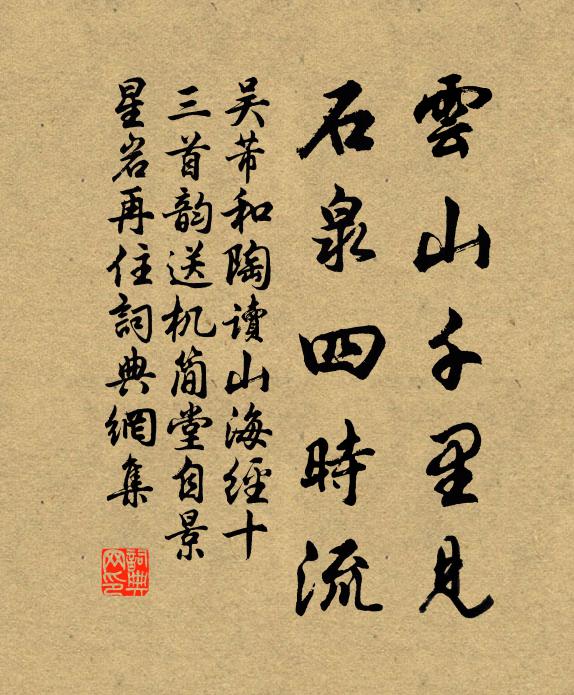 雲山千里見
石泉四時流
吴芾和陶讀山海經十
三首韵送机简堂自景
星岩再住詞典網集
詞典網印